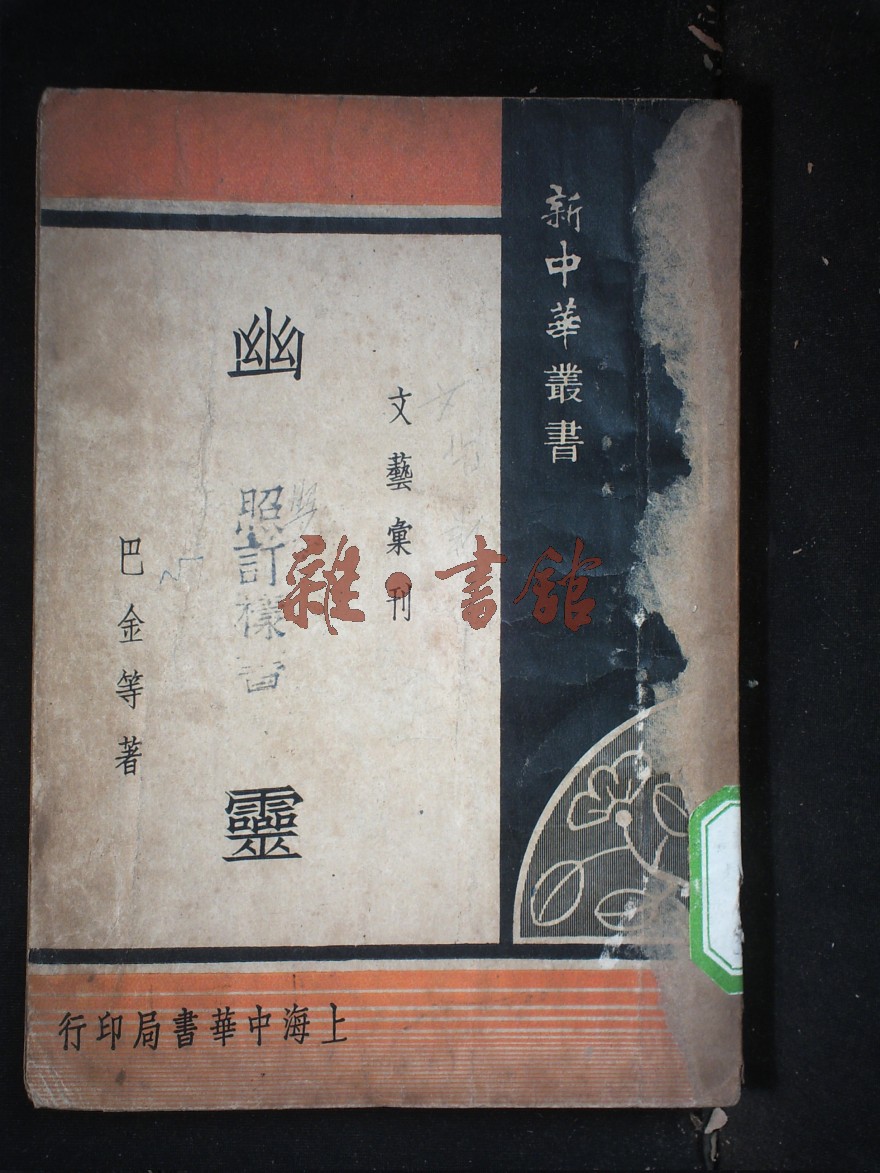 新中華叢書
文藝彙刊
幽靈
照訂樣書
巴金等著
上海中華書局印行
雜·書館